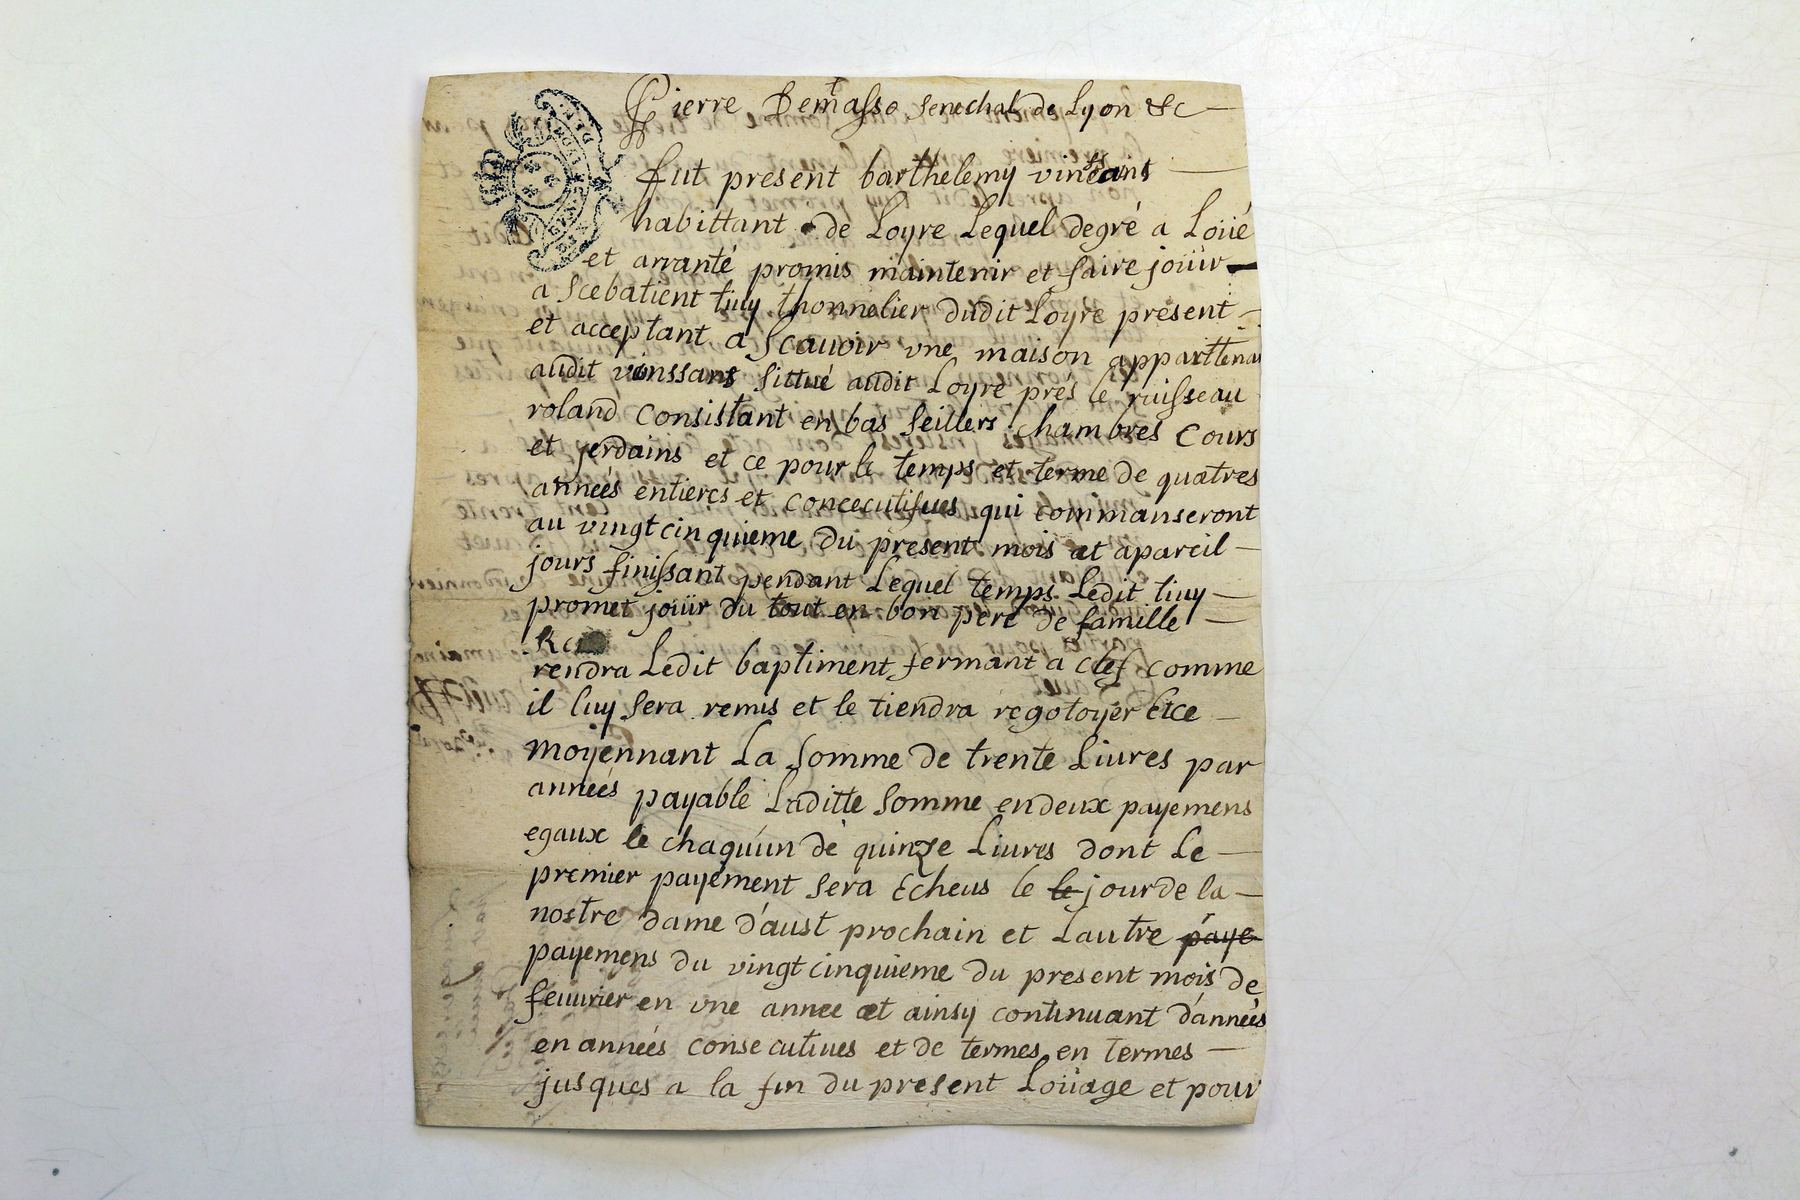 Pierre Demasso senechal de Lyon &c
fut present barthelemy vinssans
habittant de Loyre Lequel degré a Loüé
et arranté promis maintenir et faire joüir
a scebatient tiuy thonnelier dudit Loyre present
et acceptant a Scauoir vne maison apparttenan
audit vinssans Sittué audit Loyre prés le ruisseau
roland Consistant en bas Seillers chambres Cours
et jerdains et ce pour le temps et terme de quatres
années entieres et concecutifues qui commanseront
au vingtcinquieme du present mois et apareil
jours finissant pendant Lequel temps Ledit tiuy
promet joüir du tout en bon pere de famille
rendra Ledit baptiment fermant a clef comme
il luy sera remis et le tiendra regotoyer Etce
moyennant La Somme de trente Liures par
années payable Laditte Somme en deux payemens
egaux le chaqu'un de quinze Liures dont Le
premier payement sera Echeus le le jour de la
nostre dame d'aust prochain et Lautre paye
payemens du vingtcinquieme du present mois de
feuurier en vne annee et ainsy continuant d'années
en années consecutiues et de termes en termes
jusques a la fin du present Loüage et pour